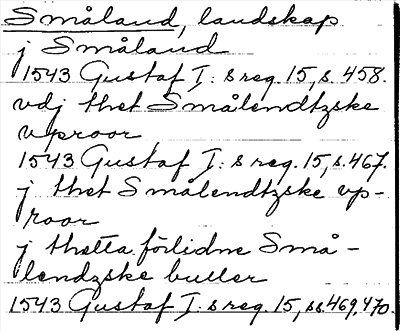 Småland, landskap
j Småland
1543 Gustaf I:s reg. 15, s. 458.
vdj thet Smålendtzske
vproor
1543 Gustaf I:s reg. 15, s. 467.
j thet Smålendtzske vp-
roor
j thetta förlidne Små-
lendzske buller
1543 Gustaf I:s reg. 15, ss. 469, 470.